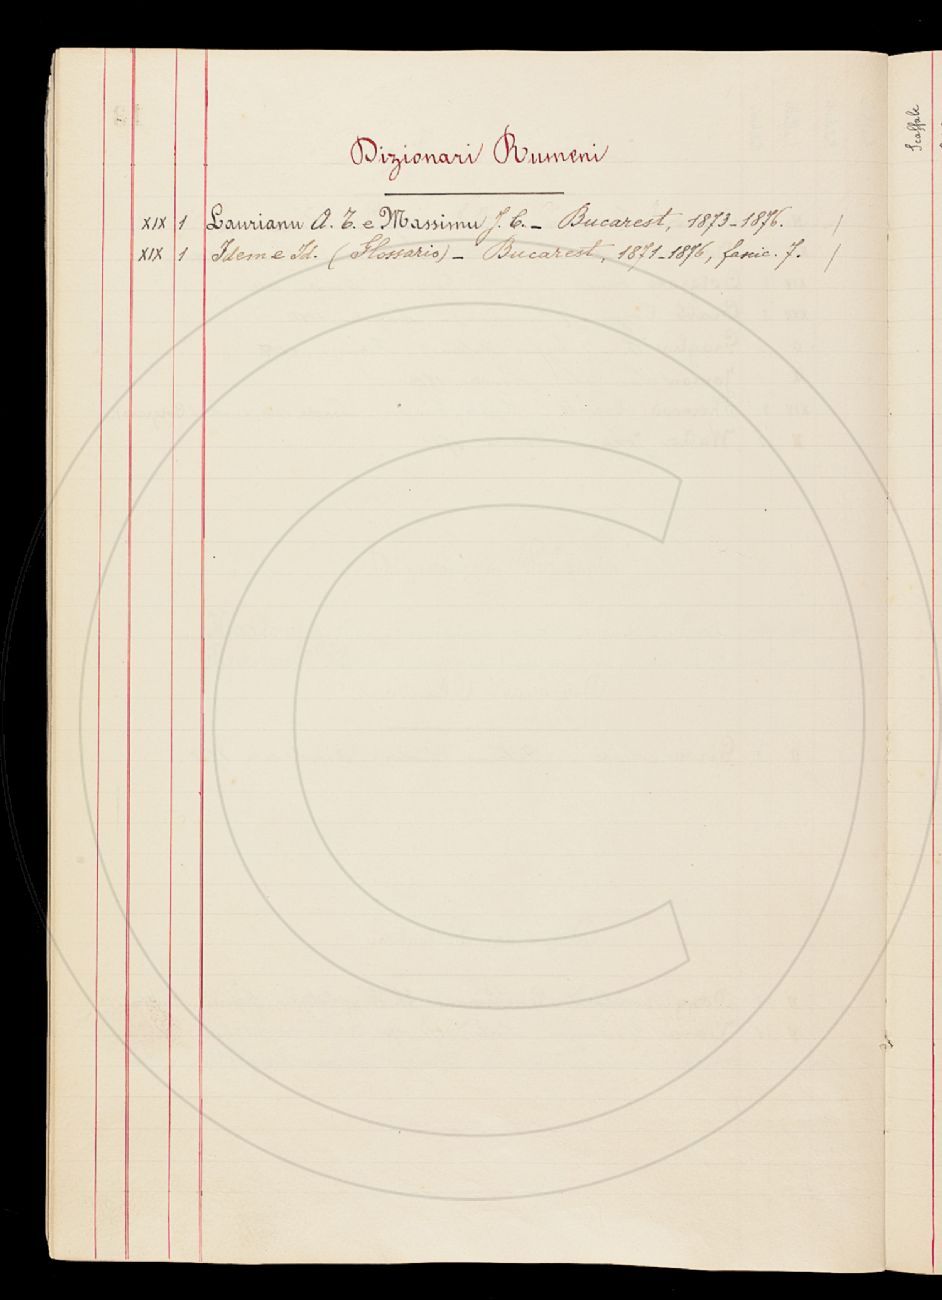 Dizionari Rumeni
XIX 1 Laurianu A. T. e Massimu J. C. - Bucarest, 1873-1876. /
XIX 1 Idem e Id. (Glossario) - Bucarest, 1871-1876, fasic. 7. /
Scaffale